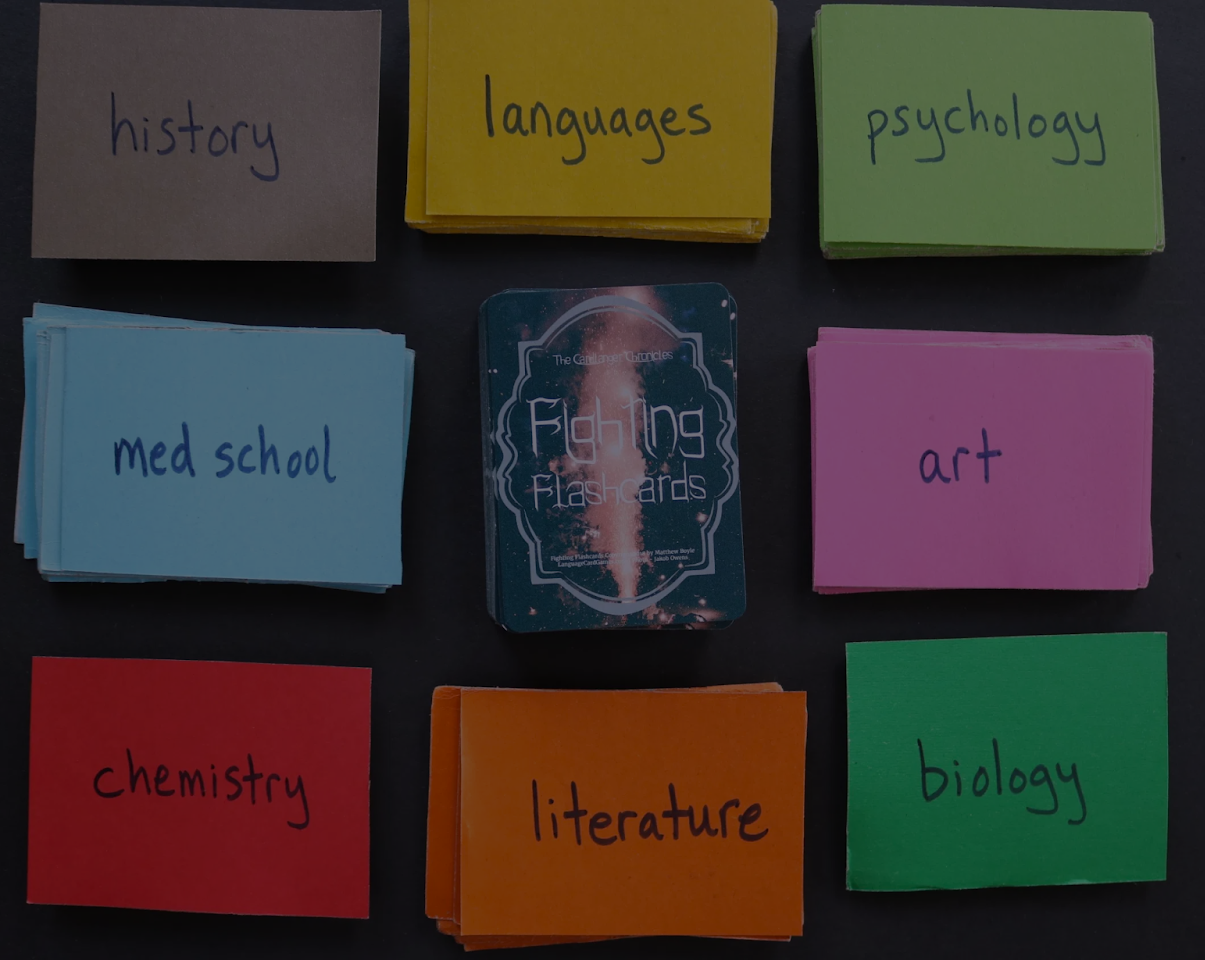 history
languages
psychology
med school
The Cardlanger Chronicles
Fighting
Flashcards
Fighting Flashcards by Matthew Boyle
Jakob Owens.
art
chemistry
literature
biology